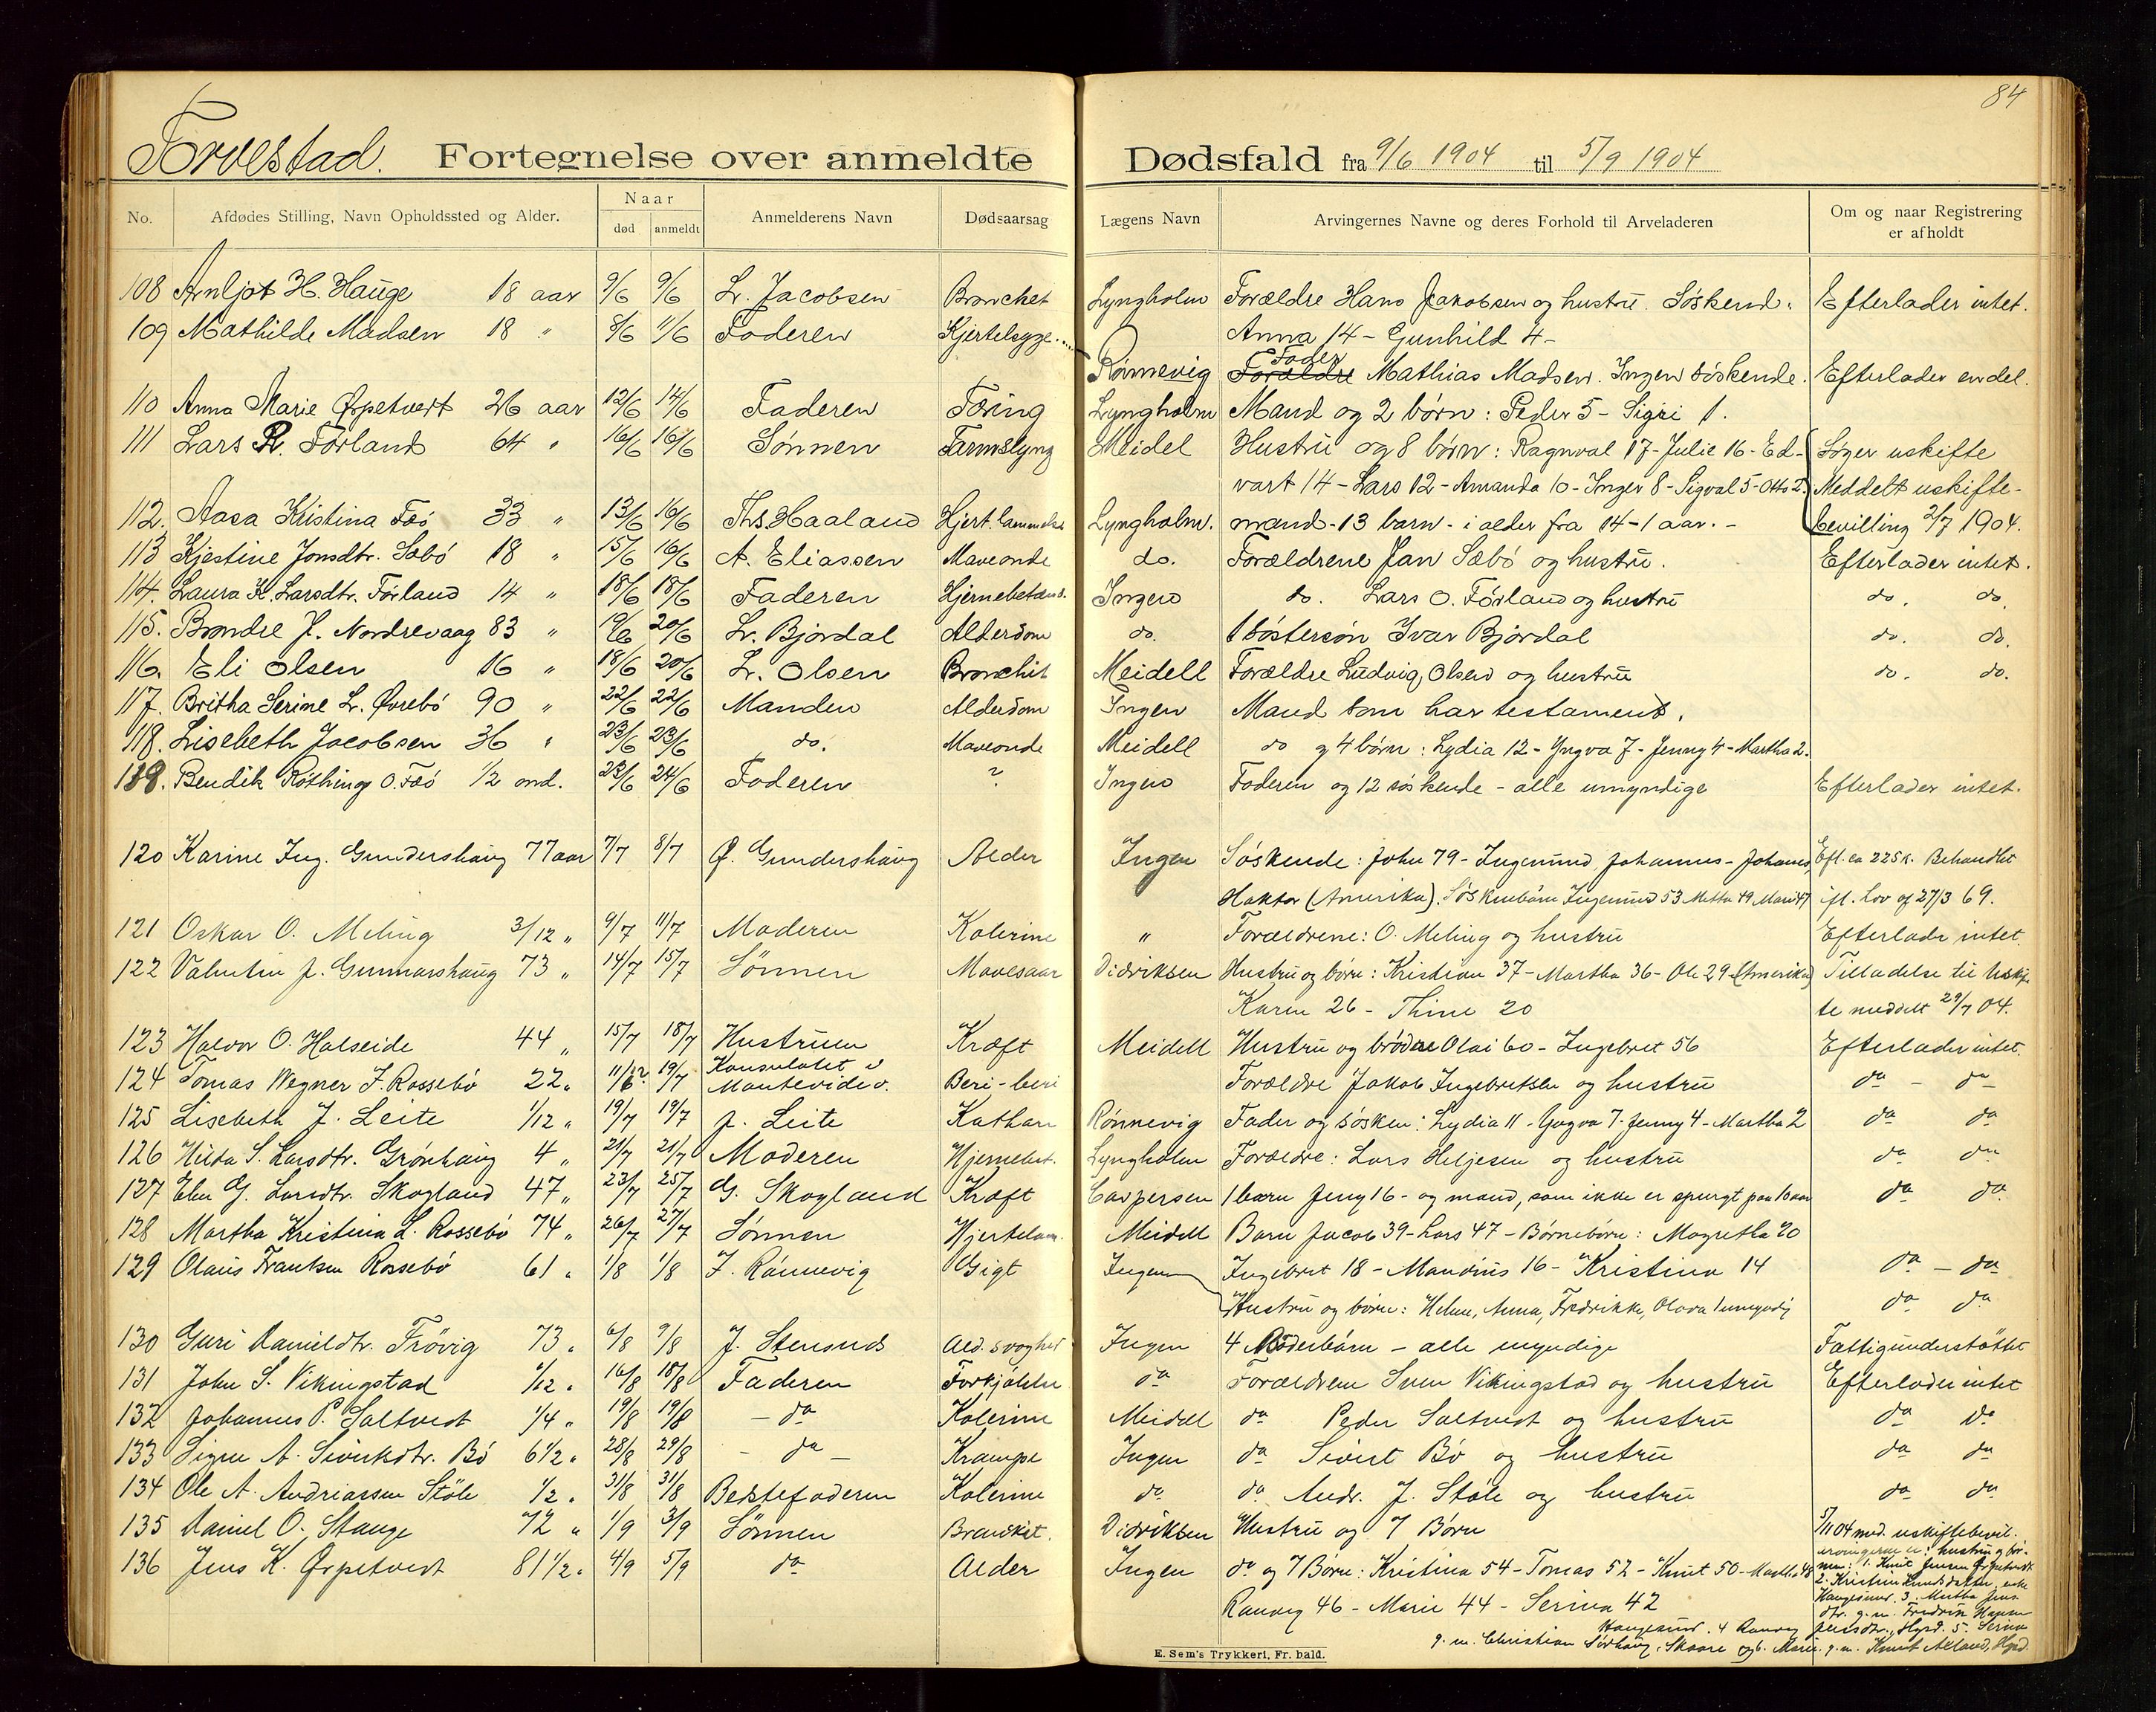 84
Torvestad. Fortegnelse over anmeldte Dødsfald fra 9/6 1904 til 5/9 1904
No. Afdødes Stilling, Navn Opholdssted og Alder. Naar død anmeldt Anmelderens Navn Dødsaarsag Lægens Navn Arvingernes Navne og deres Forhold til Arveladeren Om og naar Registrering er afholdt
108 Arnljot H. Hauge 18 aar 9/6 9/6 L. Jacobsen Bronchet Lyngholm Forældre Hans Jakobsen og hustru. Søskend: Efterlader intet.
109 Mathilde Madsen 18 " 8/6 11/6 Faderen Kjertelsyge Anna 14 - Gunhild 4 -
Rønnevig Forældre Fader Mathias Madsen. Ingen søskende. Efterlader endel.
110 Anna Marie Ørpetvedt 26 aar 12/6 14/6 Faderen Tæring Lyngholm Mand og 2 børn: Peder 5 - Sigri 1.
111 Lars R. Førland 64 " 16/6 16/6 Sønnen Tarmslyng Meidel Hustru og 8 børn: Ragnval 17 - Julie 16 - Ed- Søger uskifte
vart 14 - Lars 12 - Amanda 10 - Inger 8 - Sigval 5 - Otto 2. Meddelt uskifte-
112. Aasa Kristina Feø 33 " 13/6 16/6 Ths. Haaland Hjert. lammelse Lyngholm. mand - 13 barn - i alder fra 14-1 aar. - bevilling 2/7 1904.
113 Kjestine Jonsdtr. Sæbø 18 " 15/6 16/6 A. Eliassen Maveonde do. Forældrene Jan Sæbø og hustru. Efterlader intet.
114. Laura K. Larsdtr. Førland 14 " 18/6 18/6 Faderen Hjernebetæn. Ingen do. Lars O. Førland og hustru do. do.
115. Brandre J. Nordrevaag 83 " 19/6 20/6 L. Bjørdal Alderdom do. 1 Søstersøn Ivar Bjørdal do. do.
116. Eli Olsen 16 " 18/6 20/6 L. Olsen Bronchit Meidell Forældre Ludvig Olsen og hustru do. do.
117. Britha Serine L. Øvrebø 90 " 22/6 22/6 Manden Alderdom Ingen Mand som har testament.
118. Lisebeth Jacobsen 36 " 23/6 23/6 do. Maveonde Meidell do og 4 børn: Lydia 12 - Yngva 7 - Jenny 4 - Martha 2.
119. Bendik Røthing O. Feø 1/2 md. 23/6 24/6 Faderen ? Ingen Faderen og 12 søskende - alle umyndige Efterlader intet.
120 Karine Ing. Gundershaug 77 aar 7/7 8/7 Q. Gundershaug Alder Ingen Søskende: John 79 - Ingemund, Johannes - Johannes, Efl. ca 225 k. Behandlet
Haktor (Amerika). Søskenbørn Ingemund 53 Mette 49 Mari 47 ifl. lov af 27/3 69.
121 Oskar O. Meling 3/12 " 9/7 11/7 Moderen Kolerine " Forældrene: O. Meling og hustru Efterlade intet.
122 Valentin J. Gunnarshaug 73 " 14/7 15/7 Sønnen Mavesaar Didriksen Hustru og børn: Kristian 37 - Martha 36 - Ole 29 (Amerika) Tilladelse til Uskif
Karen 26 - Thine 20 te meddelt 29/7 04.
123 Halvor O. Halseide 44 " 15/7 18/7 Hustruen Kræft Meidell Hustru og brødre Olai 60 - Ingebret 56 Efterlader intet.
124 Tomas Wegner J. Rossebø 22 " 11/6 19/7 Konsulatet i Montevideo. Beri-beri Forældre Jakob Ingebretsen og hustru do - do
125 Lisebeth J. Leite 1/12 " 19/7 19/7 J. Leite Kathar Rønnevig Fader og søsken: Lydia 11 - Yngva 7 - Jenny 4 - Martha 2 do do
126 Hilda S. Larsdtr. Grønhaug 4 " 21/7 21/7 Moderen Hjernebet. Lyngholm Forældre: Lars Heljesen og hustru do do
127 Elen G. Larsdtr. Skogland 47 " 23/7 25/7 G. Skogland Kræft Caspersen 1 barn Jeny 16 - og mand, som ikke er spurgt paa 10 aar do do
128 Martha Kristina L. Rossebø 74 " 26/7 27/7 Sønnen Hjertelam. Meidell Barn Jacob 39 - Lars 47 - Børnebørn: Magretha 20
129 Olaus Frantsen Rossebø 61 " 1/8 1/8 J. Rønnevig Gigt Ingen Ingebret 18 - Mandius 16 - Kristina 14 do - do
Hustru og børn: Helene, Anna, Fredrikke, Olava 1 umyndig do do
130 Guri Danieldtr. Trøvig 73 " 6/8 9/8 J. Stensnes Ald. svaghed Ingen 4 Broderbørn - alle myndige Fattigunderstøttet
131 John S. Vikingstad 1/12 " 16/8 18/8 Faderen Forkjølelse do Forældrene Sven Vikingstad og hustru Efterlader intet
132 Johannes P. Saltvedt 1/4 " 19/8 19/8 - do Kolerine Meidell do Peder Saltvedt og hustru do do
133 Signe A. Sivertsdtr. Bø 6 1/2 " 28/8 29/8 - do - Krampe Ingen do Sivert Bø og hustru do do
134 Ole A. Andreassen Støle 1/2 " 31/8 31/8 Bedstefaderen Kolerine do do Andr. J. Støle og hustru do do
135 Daniel O. Stange 72 " 1/9 3/9 Sønnen Bronkit. Didriksen Hustru og 7 Børn 5/11 04 med. uskiftebevil.
136 Jens K. Ørpetvedt 81 1/2 " 4/9 5/9 do Alder Ingen do og 7 Børn: Kristina 54 - Tomas 52 - Knut 50 - Martha 48 arvingerne er: hustru og bør-
nene: 1. Knut Jensen Ørpetvedt
2. Kristine Knudsdatter, enke
Ranveg 46 - Marie 44 - Serina 42 Haugesund. 3. Martha Jens-
dtr. g. m. Fredrik Hansen
Haugesund. 4 Ranveig Jensdtr., Hgsd. 5. Serina
g. m. Christian Sørhaug, Skaare og 6. Marie g. m. Knut Aaland, Hgsd.
E. Sem's Trykkeri, Fr. hald.